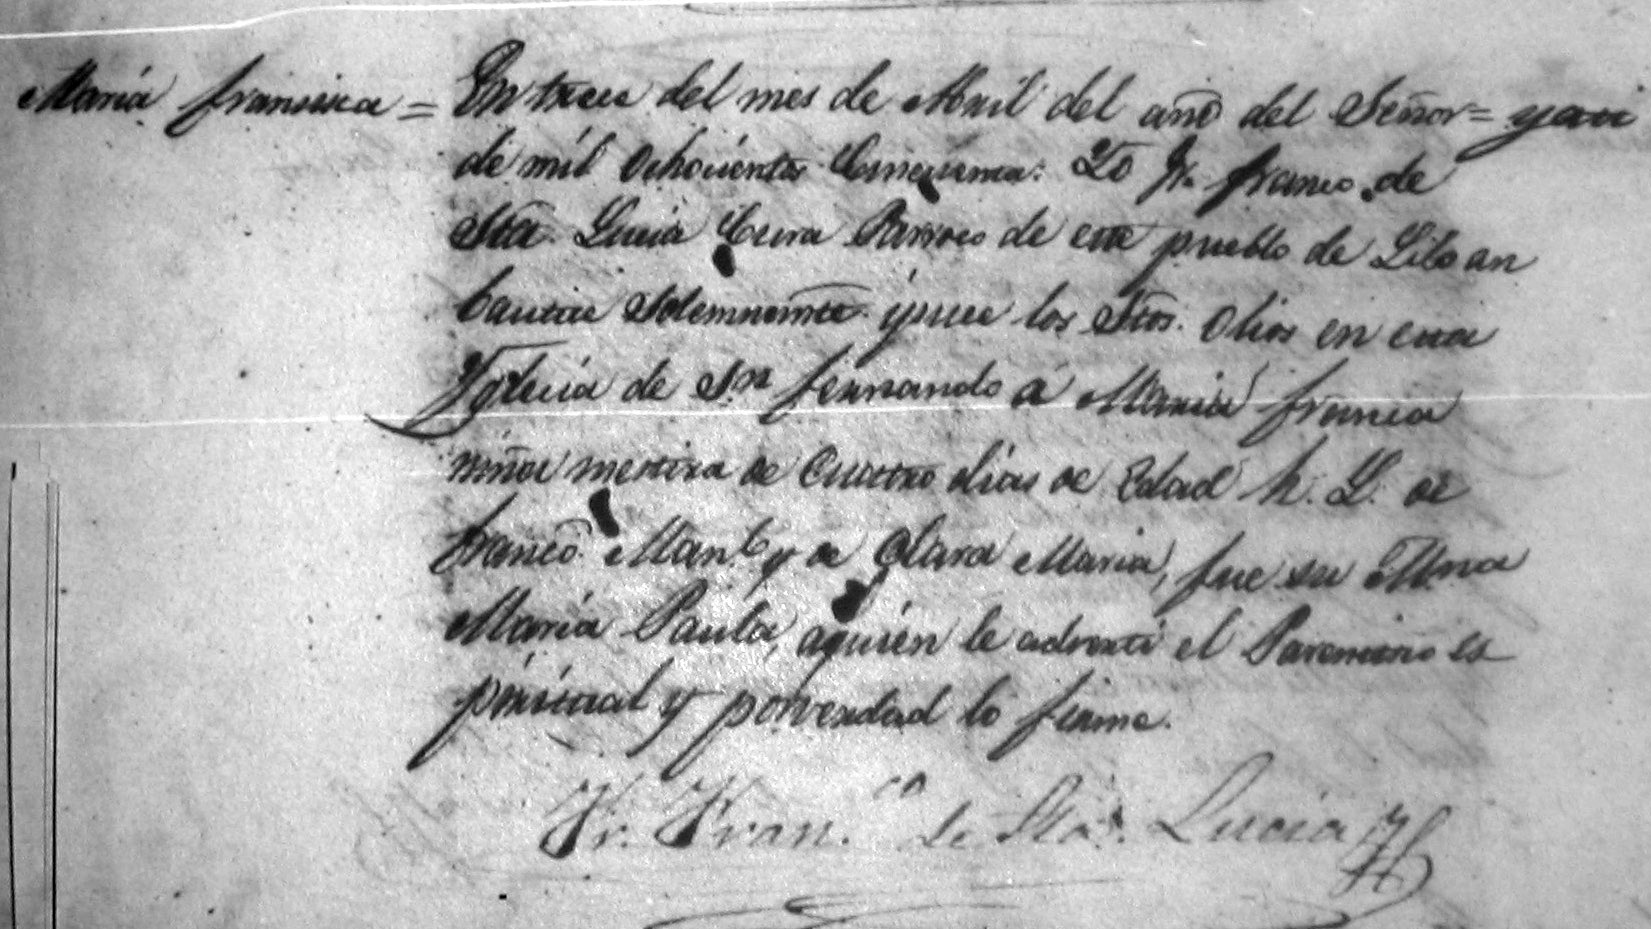 María francisca = En trece del mes de Abril del año del Señor =
de mil ochocientos Cincuenta. Yo Fr. franco. de
Sta. Lucia Cura Parroco de este pueblo de Liloan
bautice solemnemte. y puse los Stos. Olios en esta
Yglecia de Sn. fernando á Maria franca
niña mestiza de Cuatro dias de Edad h. L. de
franco. Manl. y de Clara Maria, fue su Mna
María Paula, aquien le advertí el Parentesco es
piritual y porverdad lo firme.
Fr. Fran.co de Sta. Lucia